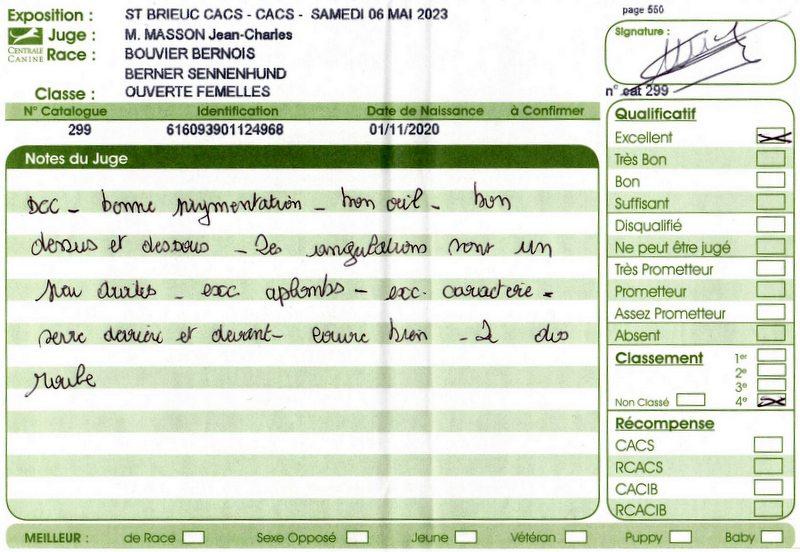 Exposition : ST BRIEUC CACS - CACS - SAMEDI 06 MAI 2023
page 550
CENTRALE CANINE
Juge : M. MASSON Jean-Charles
Signature :
Race : BOUVIER BERNOIS
BERNER SENNENHUND
Classe : OUVERTE FEMELLES
n° cat 299
N° Catalogue Identification Date de Naissance à Confirmer
299 616093901124968 01/11/2020
Notes du Juge
DCC - bonne pigmentation - bon oeil - bon
dessus et dessous - Les angulations sont un
peu droites - exc. aplombs - exc. caractère -
serre derrière et devant - couvre bien - 2 dos
Qualificatif
Excellent
Très Bon
Bon
Suffisant
Disqualifié
Ne peut être jugé
Très Prometteur
Prometteur
Assez Prometteur
Absent
Classement 1er
2e
3e
Non Classé 4e
Récompense
CACS
RCACS
CACIB
RCACIB
MEILLEUR : de Race Sexe Opposé Jeune Vétéran Puppy Baby